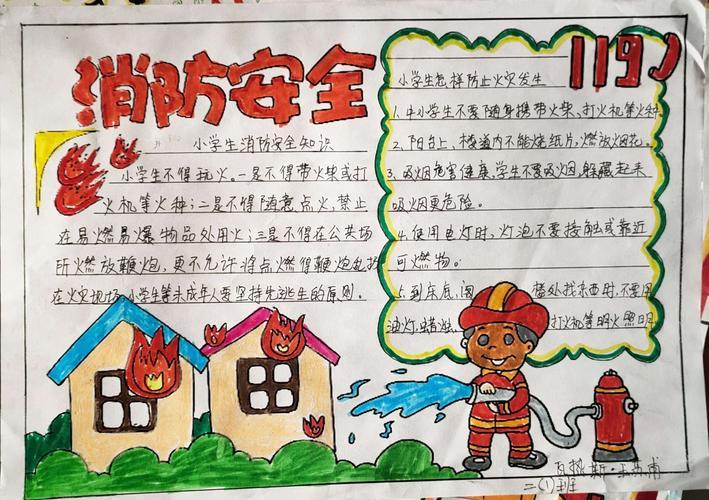 消防安全
小学生消防安全知识
小学生不得玩火。一是不得带火柴或打
火机等火种;二是不得随意点火,禁止
在易燃易爆物品处用火;三是不得在公共场
所燃放鞭炮,更不允许将点燃得鞭炮乱扔
在火灾现场,小学生等未成年人要坚持先逃生的原则。
119
小学生怎样防止火灾发生
1.中小学生不要随身携带火柴、打火机等火种
2.阳台上、楼道内不能烧纸片,燃放烟花。
3.吸烟危害健康,学生不要吸烟,躲藏起来
吸烟更危险。
4.使用电灯时,灯泡不要接触或靠近
可燃物。
5.到床底、阁 楼处找东西时,不要用
油灯、蜡烛、 打火机等明火照明
二(1)班